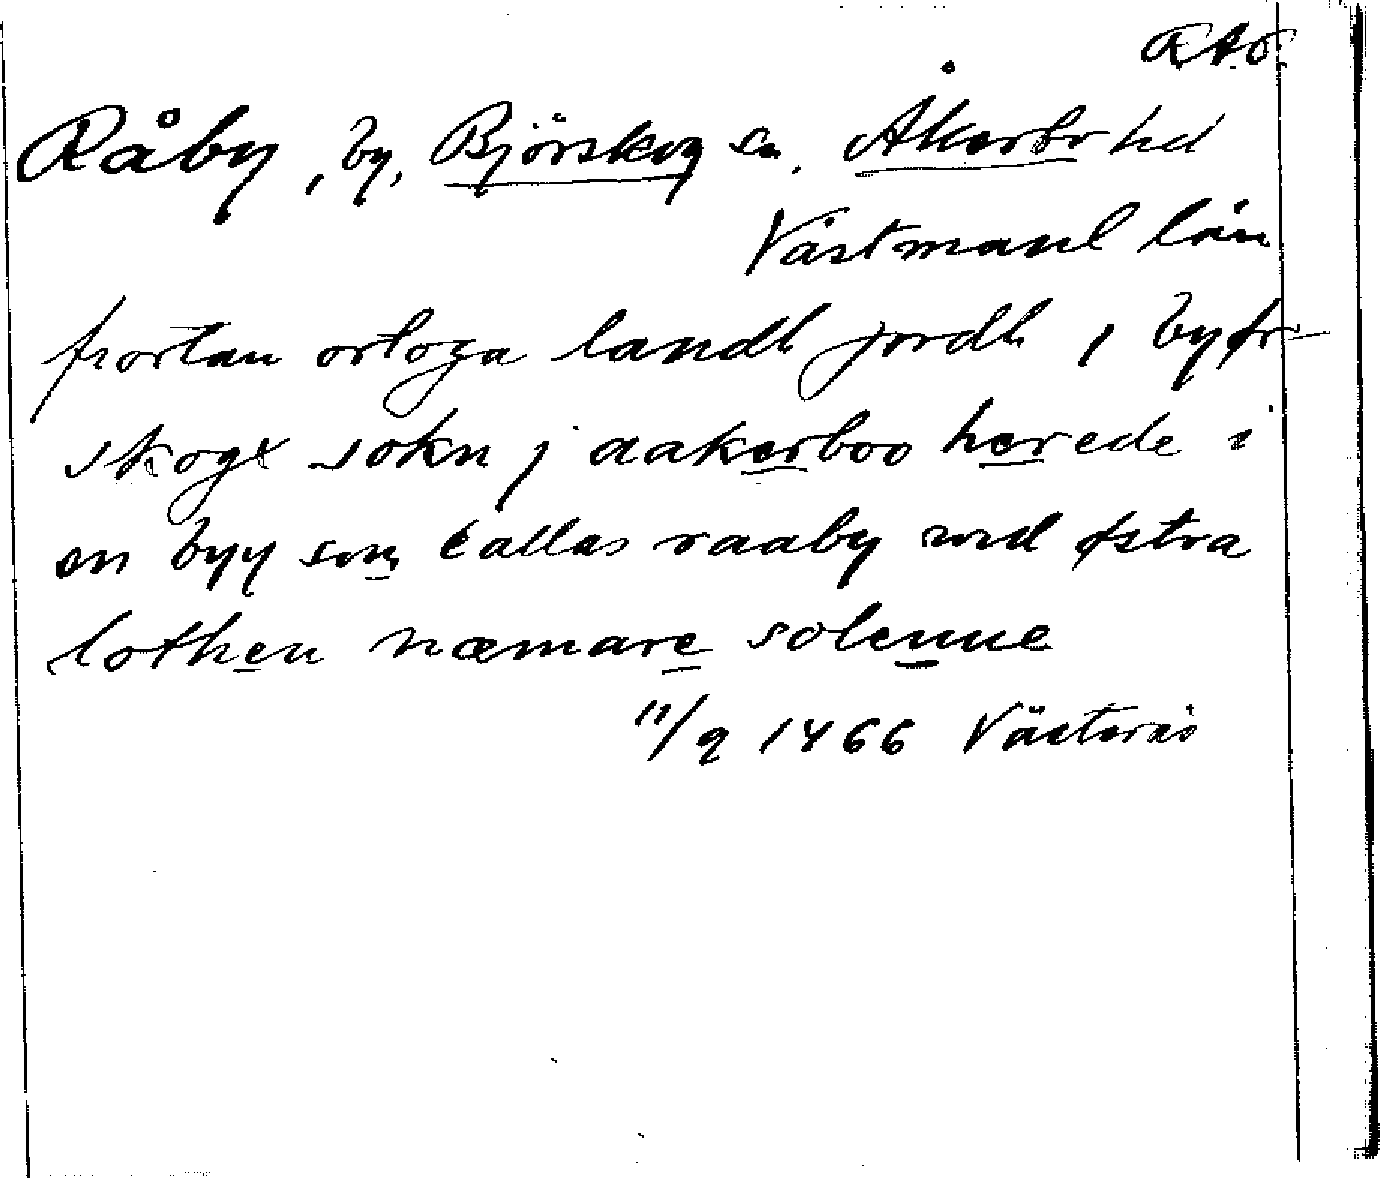 RAÖ.
Råby, by, Björskog sn. Åkerbo hd
Västmanl län
fiortan ørtoga landh jordh i byør-
skogx sokn j aakerboo herede i
en byy som callas raaby wid østra
lothen næmare solenne
11/9 1466 Västerås